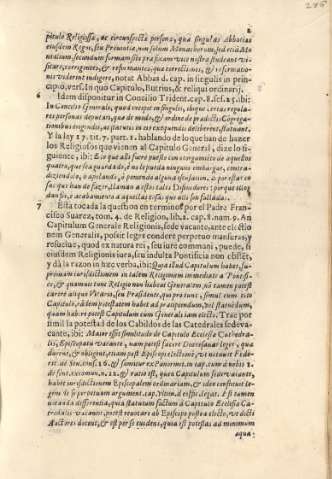 2
pitulo Religiosæ, ac circunspectæ personæ, quæ singulas Abbatias
eiusdem Regni, seu Prouintiæ, non solum Monachorum, sed etiam
secundum formam sibi præfixam vice nostra studeant vi-
sitare, corrigentes, & reformantes, quæ correctionis, & reformatio-
nis viderint indigere, notat Abbad. cap. in singulis in prin-
cipio, vers. In quo Capitulo, Butrius, & reliqui ordinarij.
6 Idem disponitur in Concilio Trident. cap. 8. sess. 25. ibi:
In Concilio Generali, quod
personas deputari, quæ de modo, & ordine de prædictis Congrega-
tionibus erigendis, ac statutis in eis exequendis deliberent, statuant.
Y la ley 17. tit. 7. part. 1. hablando de lo que han de hazer
los Religiosos que vienen al Capitulo General, dize lo si-
guiente, ibi: E lo que alli fuere puesto con otorgamiento de aquestos
quatro, que sea guardado, è no lo pueda ninguno embargar, contra-
diziendolo, ò apelando, ò poniendo alguna escusacion. E por estas co-
sas que han de fazer, llaman a estos tales Difinidores: porque ellos
dan fin, è acabamiento a aquellas cosas que alli son fallado.
7 Está tocada la question en terminos por el Padre Fran-
cisco Suarez, tom. 4. de Religion, lib. 2. cap. 8. num. 9. An
Capitulum Generale Religionis, sede vacante, ante electio
nem Generalis, possit leges condere perpetuo mansuras, y
resuelue, quod ex natura rei, seu iure communi, puede, si
eiusdem Religionis iura, seu indulta Pontificia non obstet,
y dà la razon in hæc verba, ibi: Quia illud Capitulum habet, su-
premam iurisdictionem in talem Religionem immediatè a Pontifi-
ce, & quamuis tunc Religio non habeat Generalem, ni tamen potest
carere aliquo Vicario, seu Præsidente, qui pro tunc, simul cum toto
Capitulo, eadem potestatem habet ad præcipiendum, vel statuendum,
quam habere potest Capitulum cum Generali iam electo. Trae por
simil la potestad de los Cabildos de las Catedrales sede va-
cante, ibi: Maior esse similitudo de Capitulo Ecclesiæ Cathedra-
lis, Episcopatu vacante, nam potest facere Diocesanas leges, quæ
durent, & obligent, etiam post Episcopi electionem, ut notauit Fede-
ric. de Sen. cons. 16. & sumitur ex Panormit. in cap. cum à nobis
de sent. excomun. n. 12. & ratio est, quia Capitulum sede vacante,
habet iurisdictionem Episcopalem ordinariam, & ideo constituit le-
gem in perpetuum argument. cap. vltim. de offic. delegat. Est tamen
notanda differentia, quia statutum factum à Capitulo Ecclesiæ Ca-
thedralis vacantis, potest reuocare ab Episcopo postea electo, ut dicti
Auctores docent, & est per se euidens, quia est potestas ad minimum
æqua: